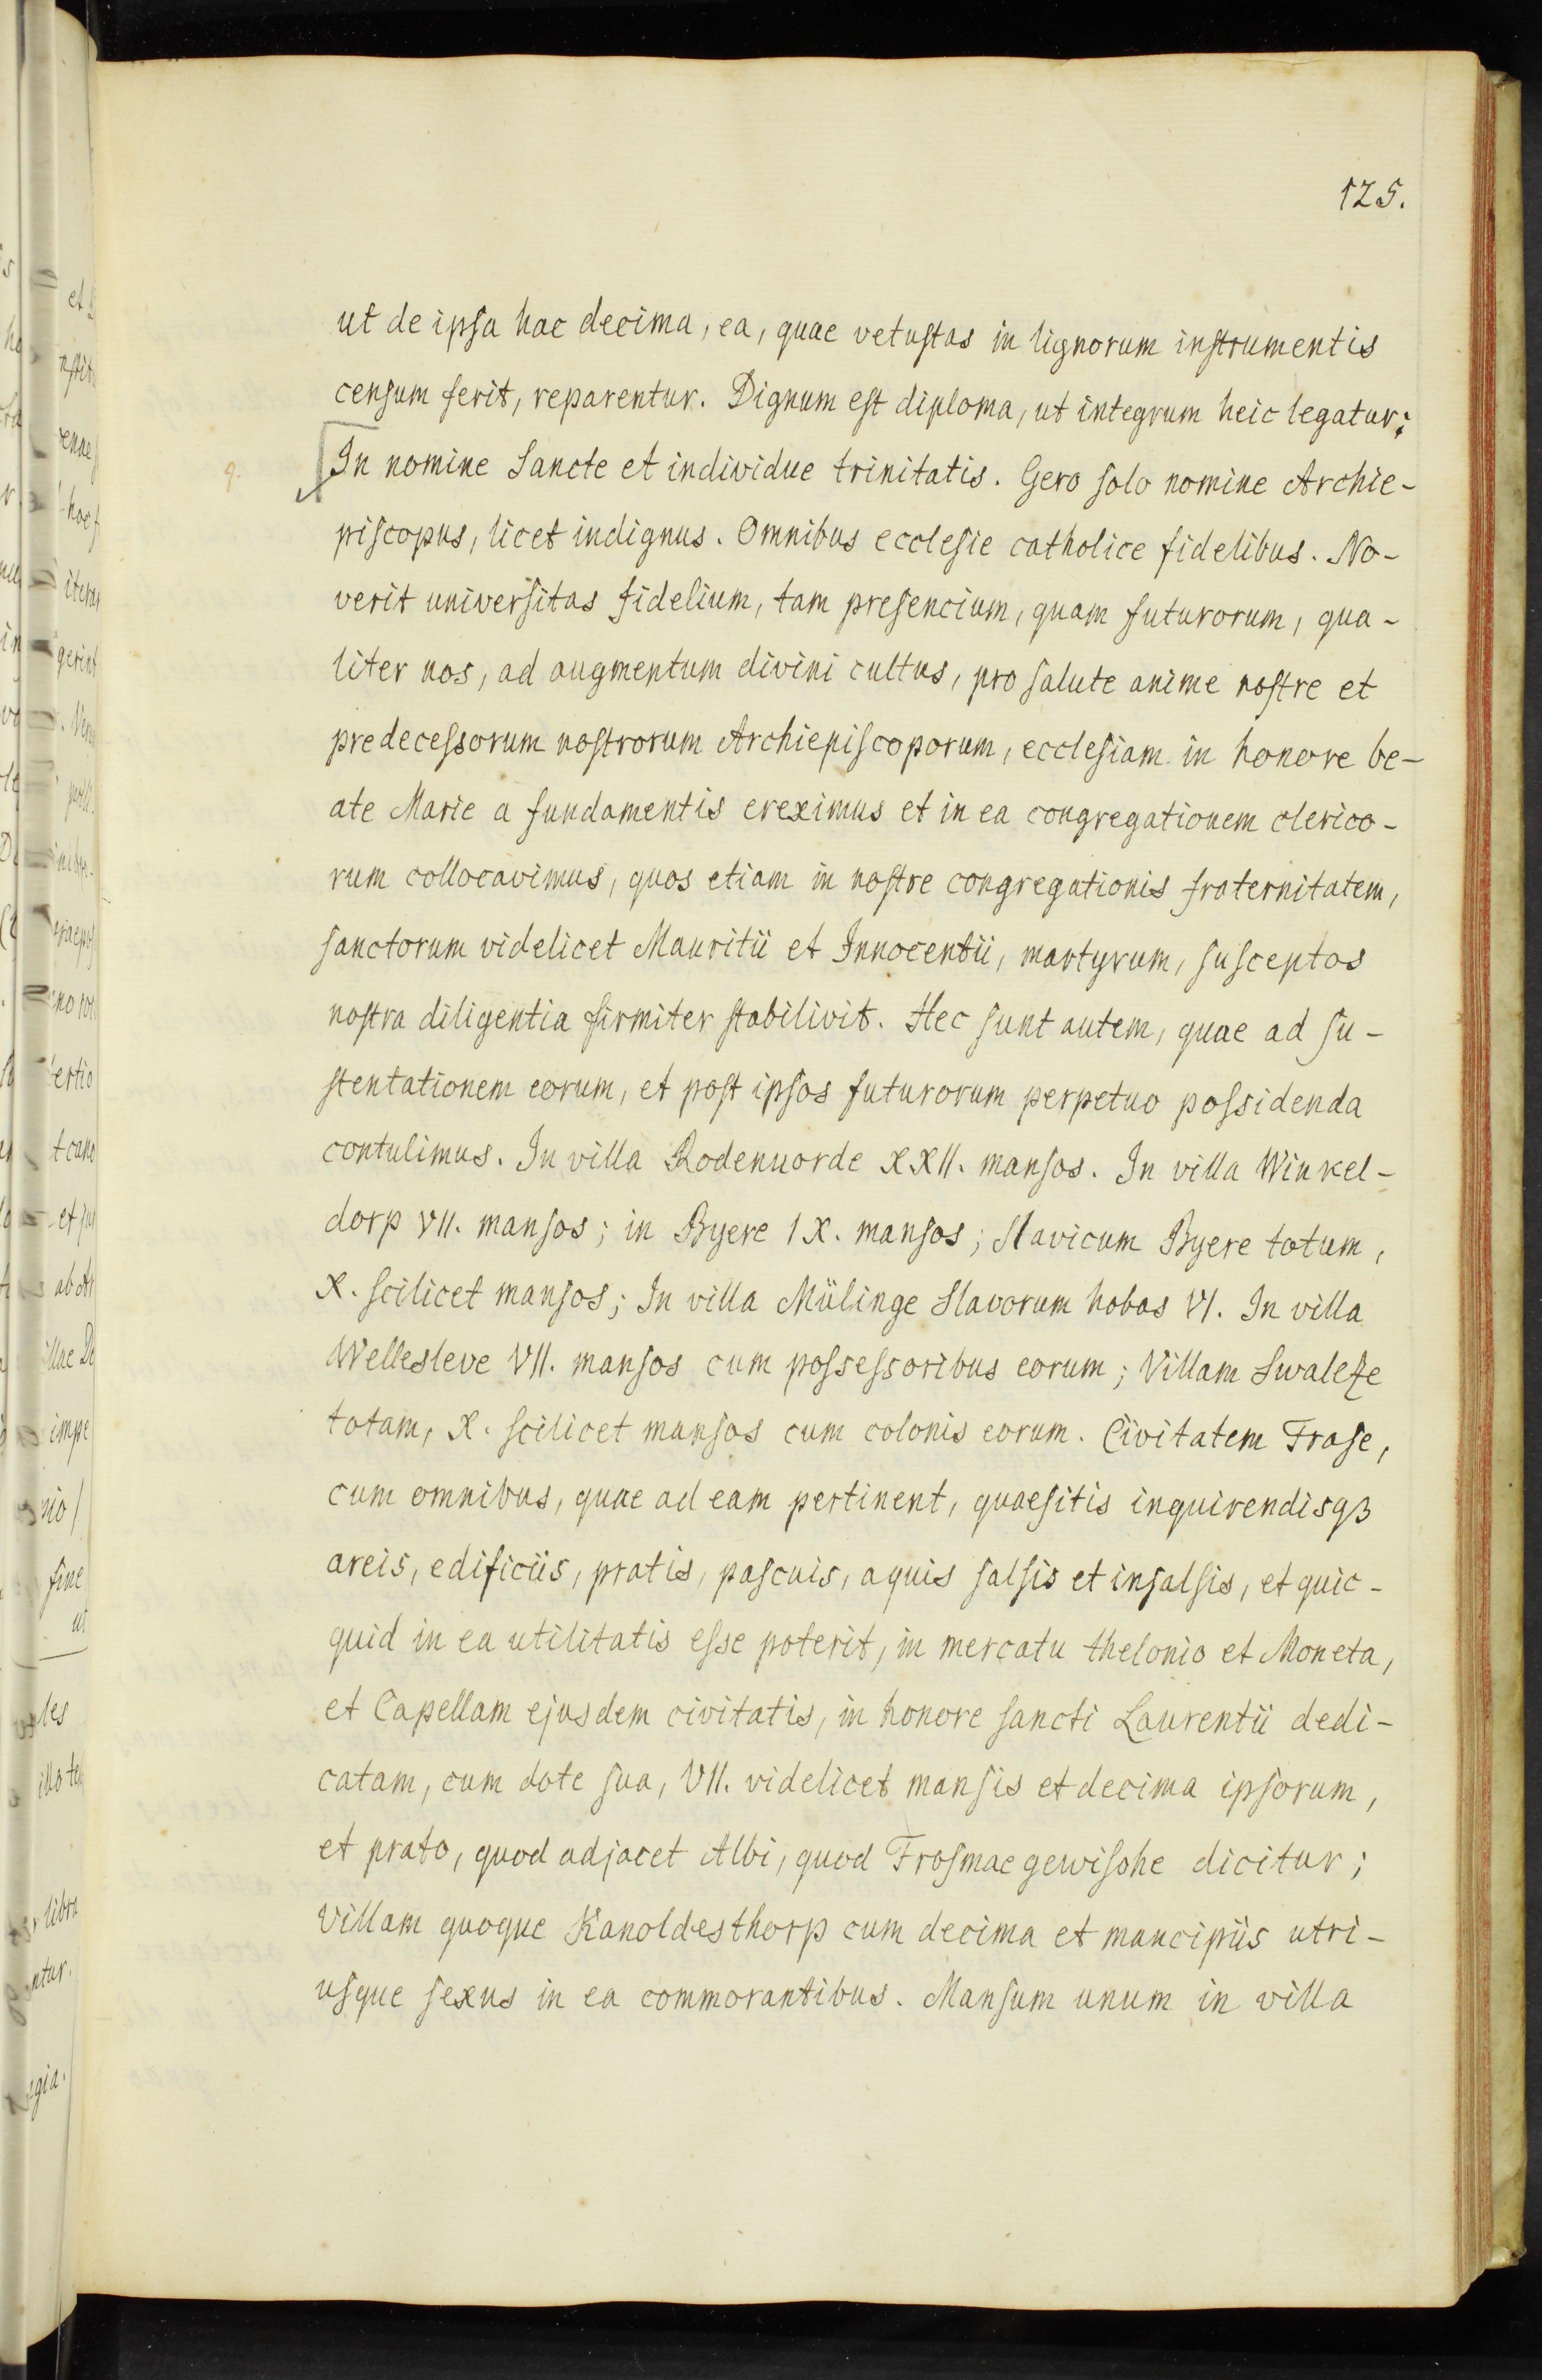 125.
ut de ipsa hac decima, ea, quae vetustas in lignorum instrumentis
censum ferit, reparentur. Dignum est diploma, ut integrum heic legatur:
9.
In nomine Sancte et individue trinitatis. Gero solo nomine Archie-
piscopus, licet indignus. Omnibus ecclesie catholice fidelibus. No-
verit universitas fidelium, tam presencium, quam futurorum, qua-
liter nos, ad augmentum divini cultus, pro salute anime nostre et
predecessorum nostrorum Archiepiscoporum, ecclesiam in honore be-
ate Marie a fundamentis ereximus et in ea congregationem clerico-
rum collocavimus, quos etiam in nostre congregationis fraternitatem,
sanctorum videlicet Mauritii et Innocentii, martyrum, susceptos
nostra diligentia firmiter stabilivit. Hec sunt autem, quae ad su-
stentationem eorum, et post ipsos futurorum perpetuo possidenda
contulimus. In villa Rodenuorde XXII. mansos. In villa Winkel-
dorp VII. mansos; in Byere IX. mansos; Slavicum Byere totum,
X. scilicet mansos; In villa Mülinge Slavorum hobas VI. In villa
Wellesleve VII. mansos cum possessoribus eorum; Villam Swaleze
totam, X. scilicet mansos cum colonis eorum. Civitatem Frose,
cum omnibus, quae ad eam pertinent, quaesitis inquirendisqꝫ
areis, edificiis, pratis, pascuis, aquis salsis et insalsis, et quic-
quid in ea utilitatis esse poterit, in mercatu thelonio et Moneta,
et Capellam ejusdem civitatis, in honore sancti Laurentii dedi-
catam, cum dote sua, VII. videlicet mansis et decima ipsorum,
et prato, quod adjacet Albi, quod Frosmac gewisohe dicitur;
villam quoque Kanoldesthorp cum decima et mancipiis utri-
usque sexus in ea commorantibus. Mansum unum in villa